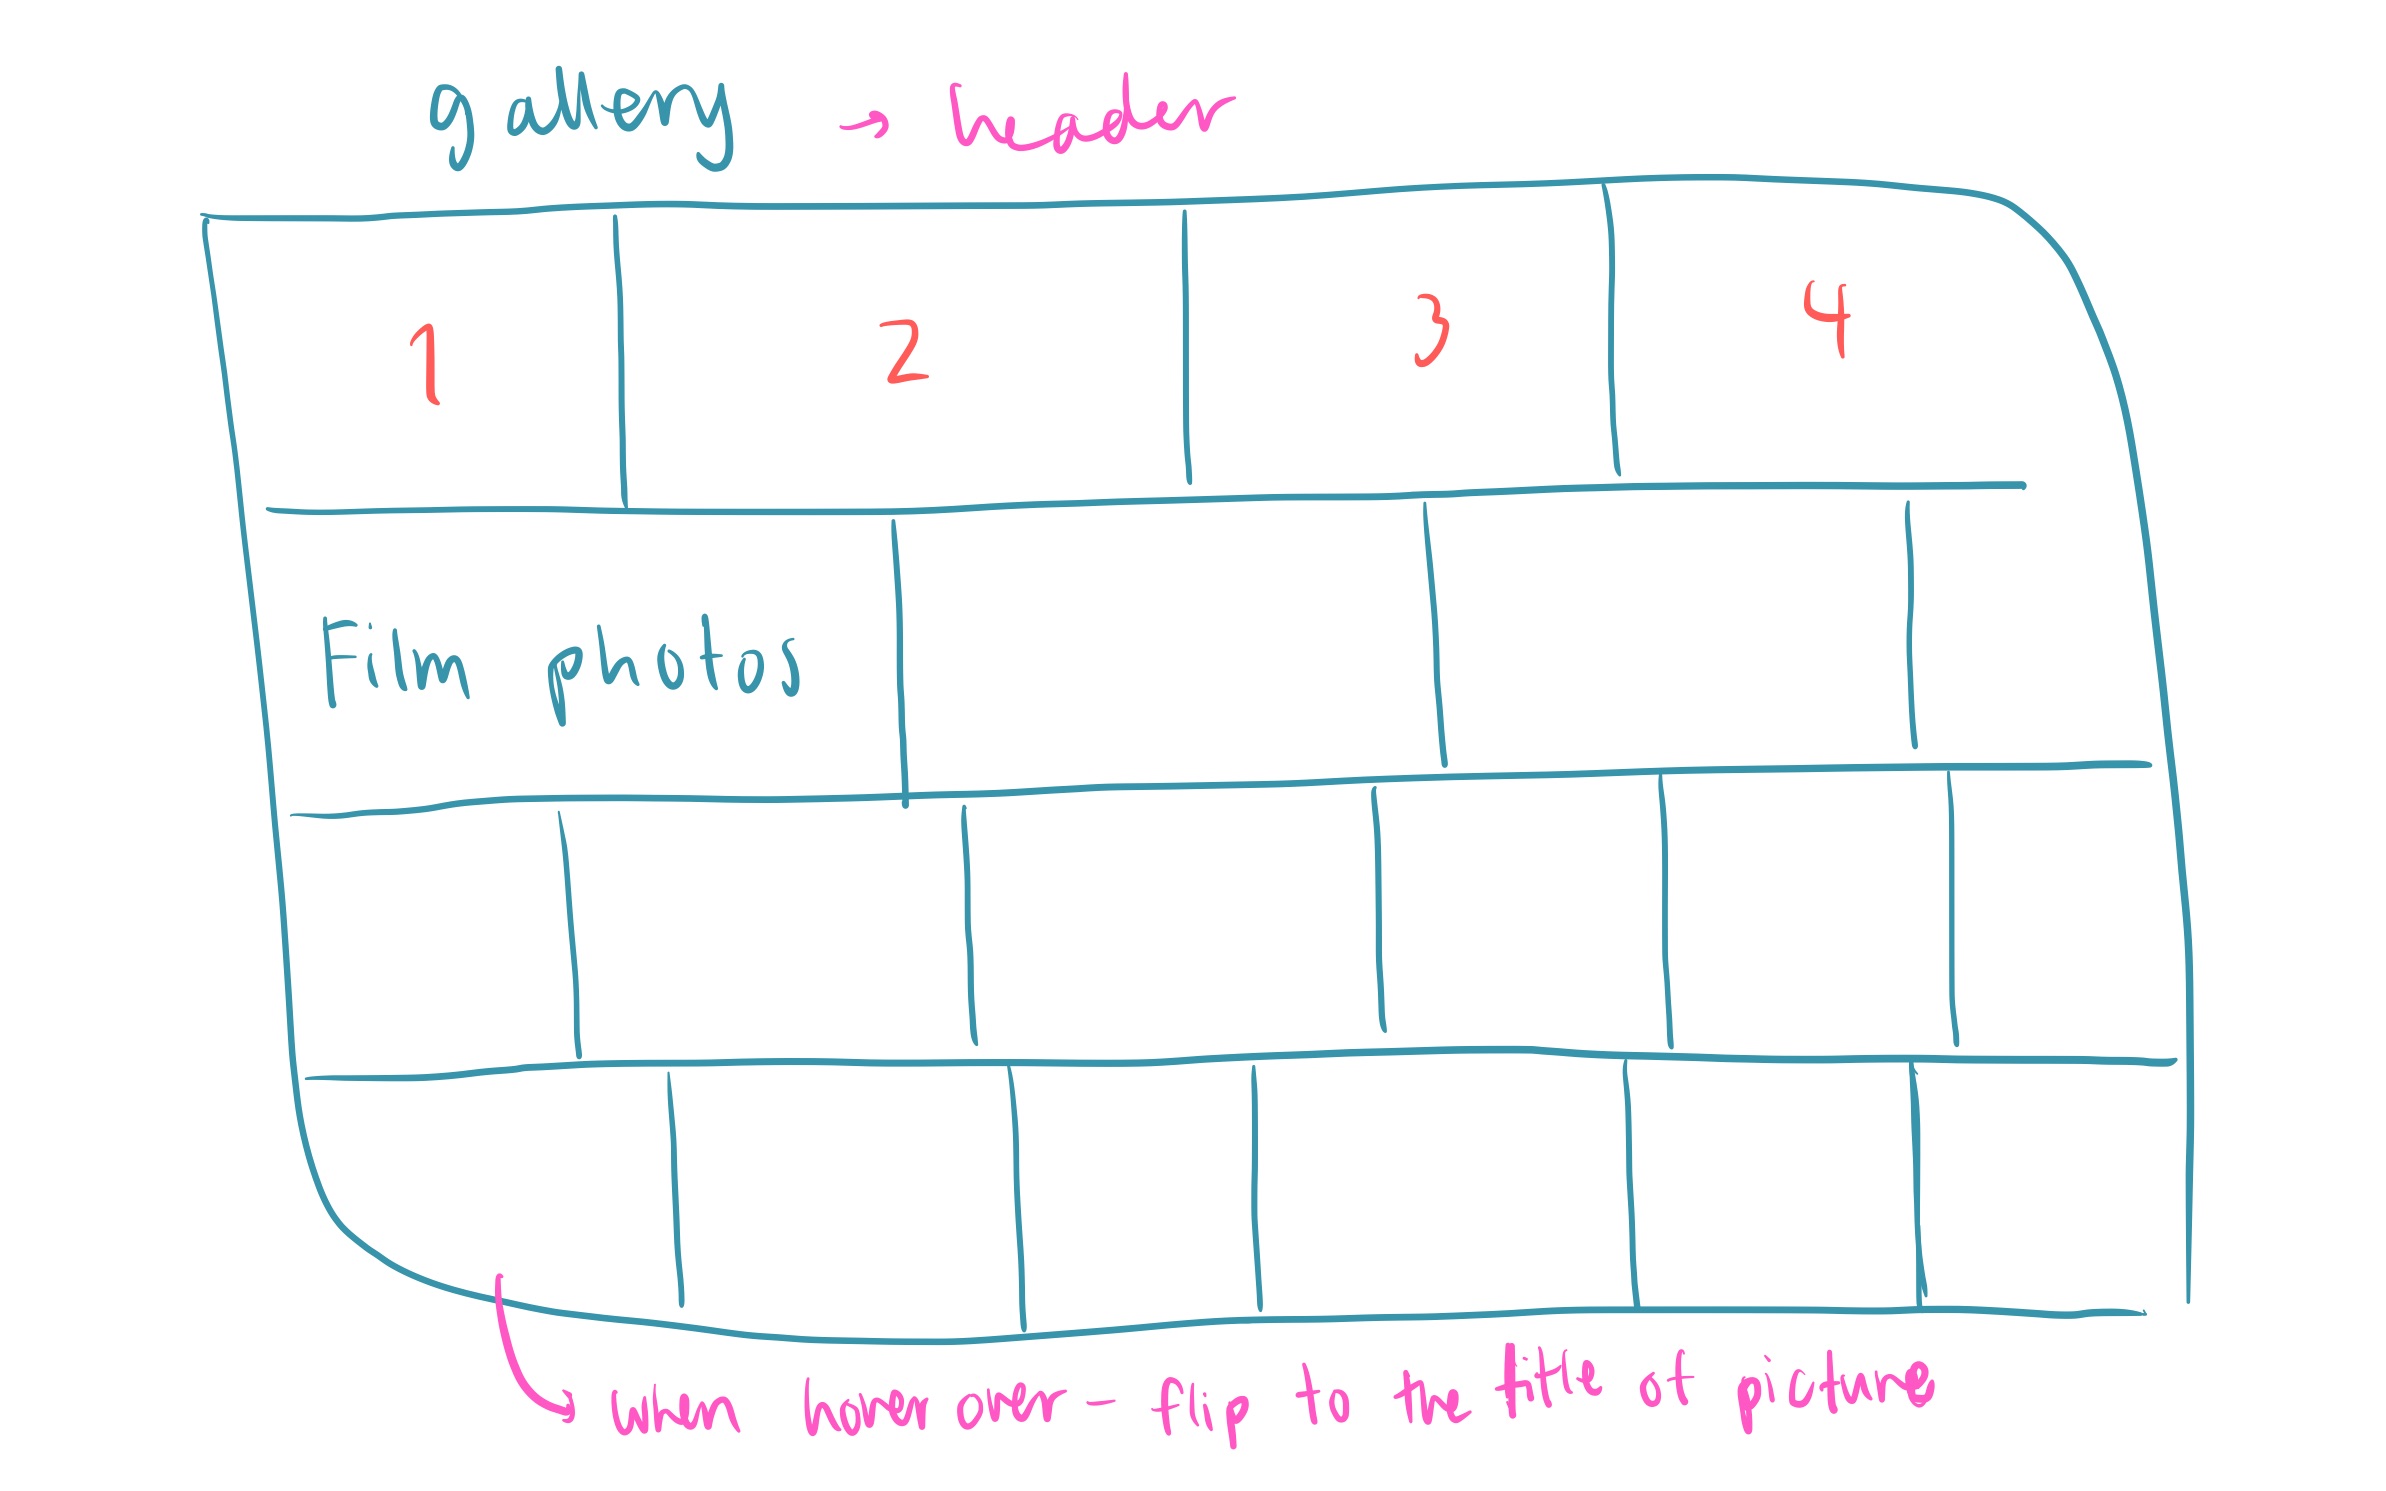 gallery → header
1 2 3 4
Film photos
when hover over - flip to the title of picture